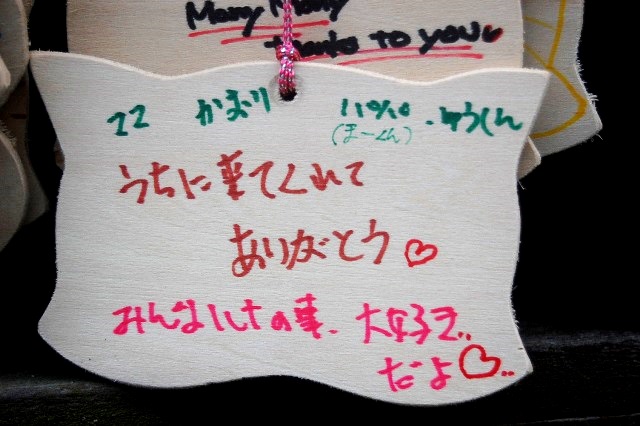 Many Many
thanks to you♥
かおり
(まーくん)
・ゆうくん
うちに来てくれて
ありがとう♡
みんなの事、大好き..
だよ♡..